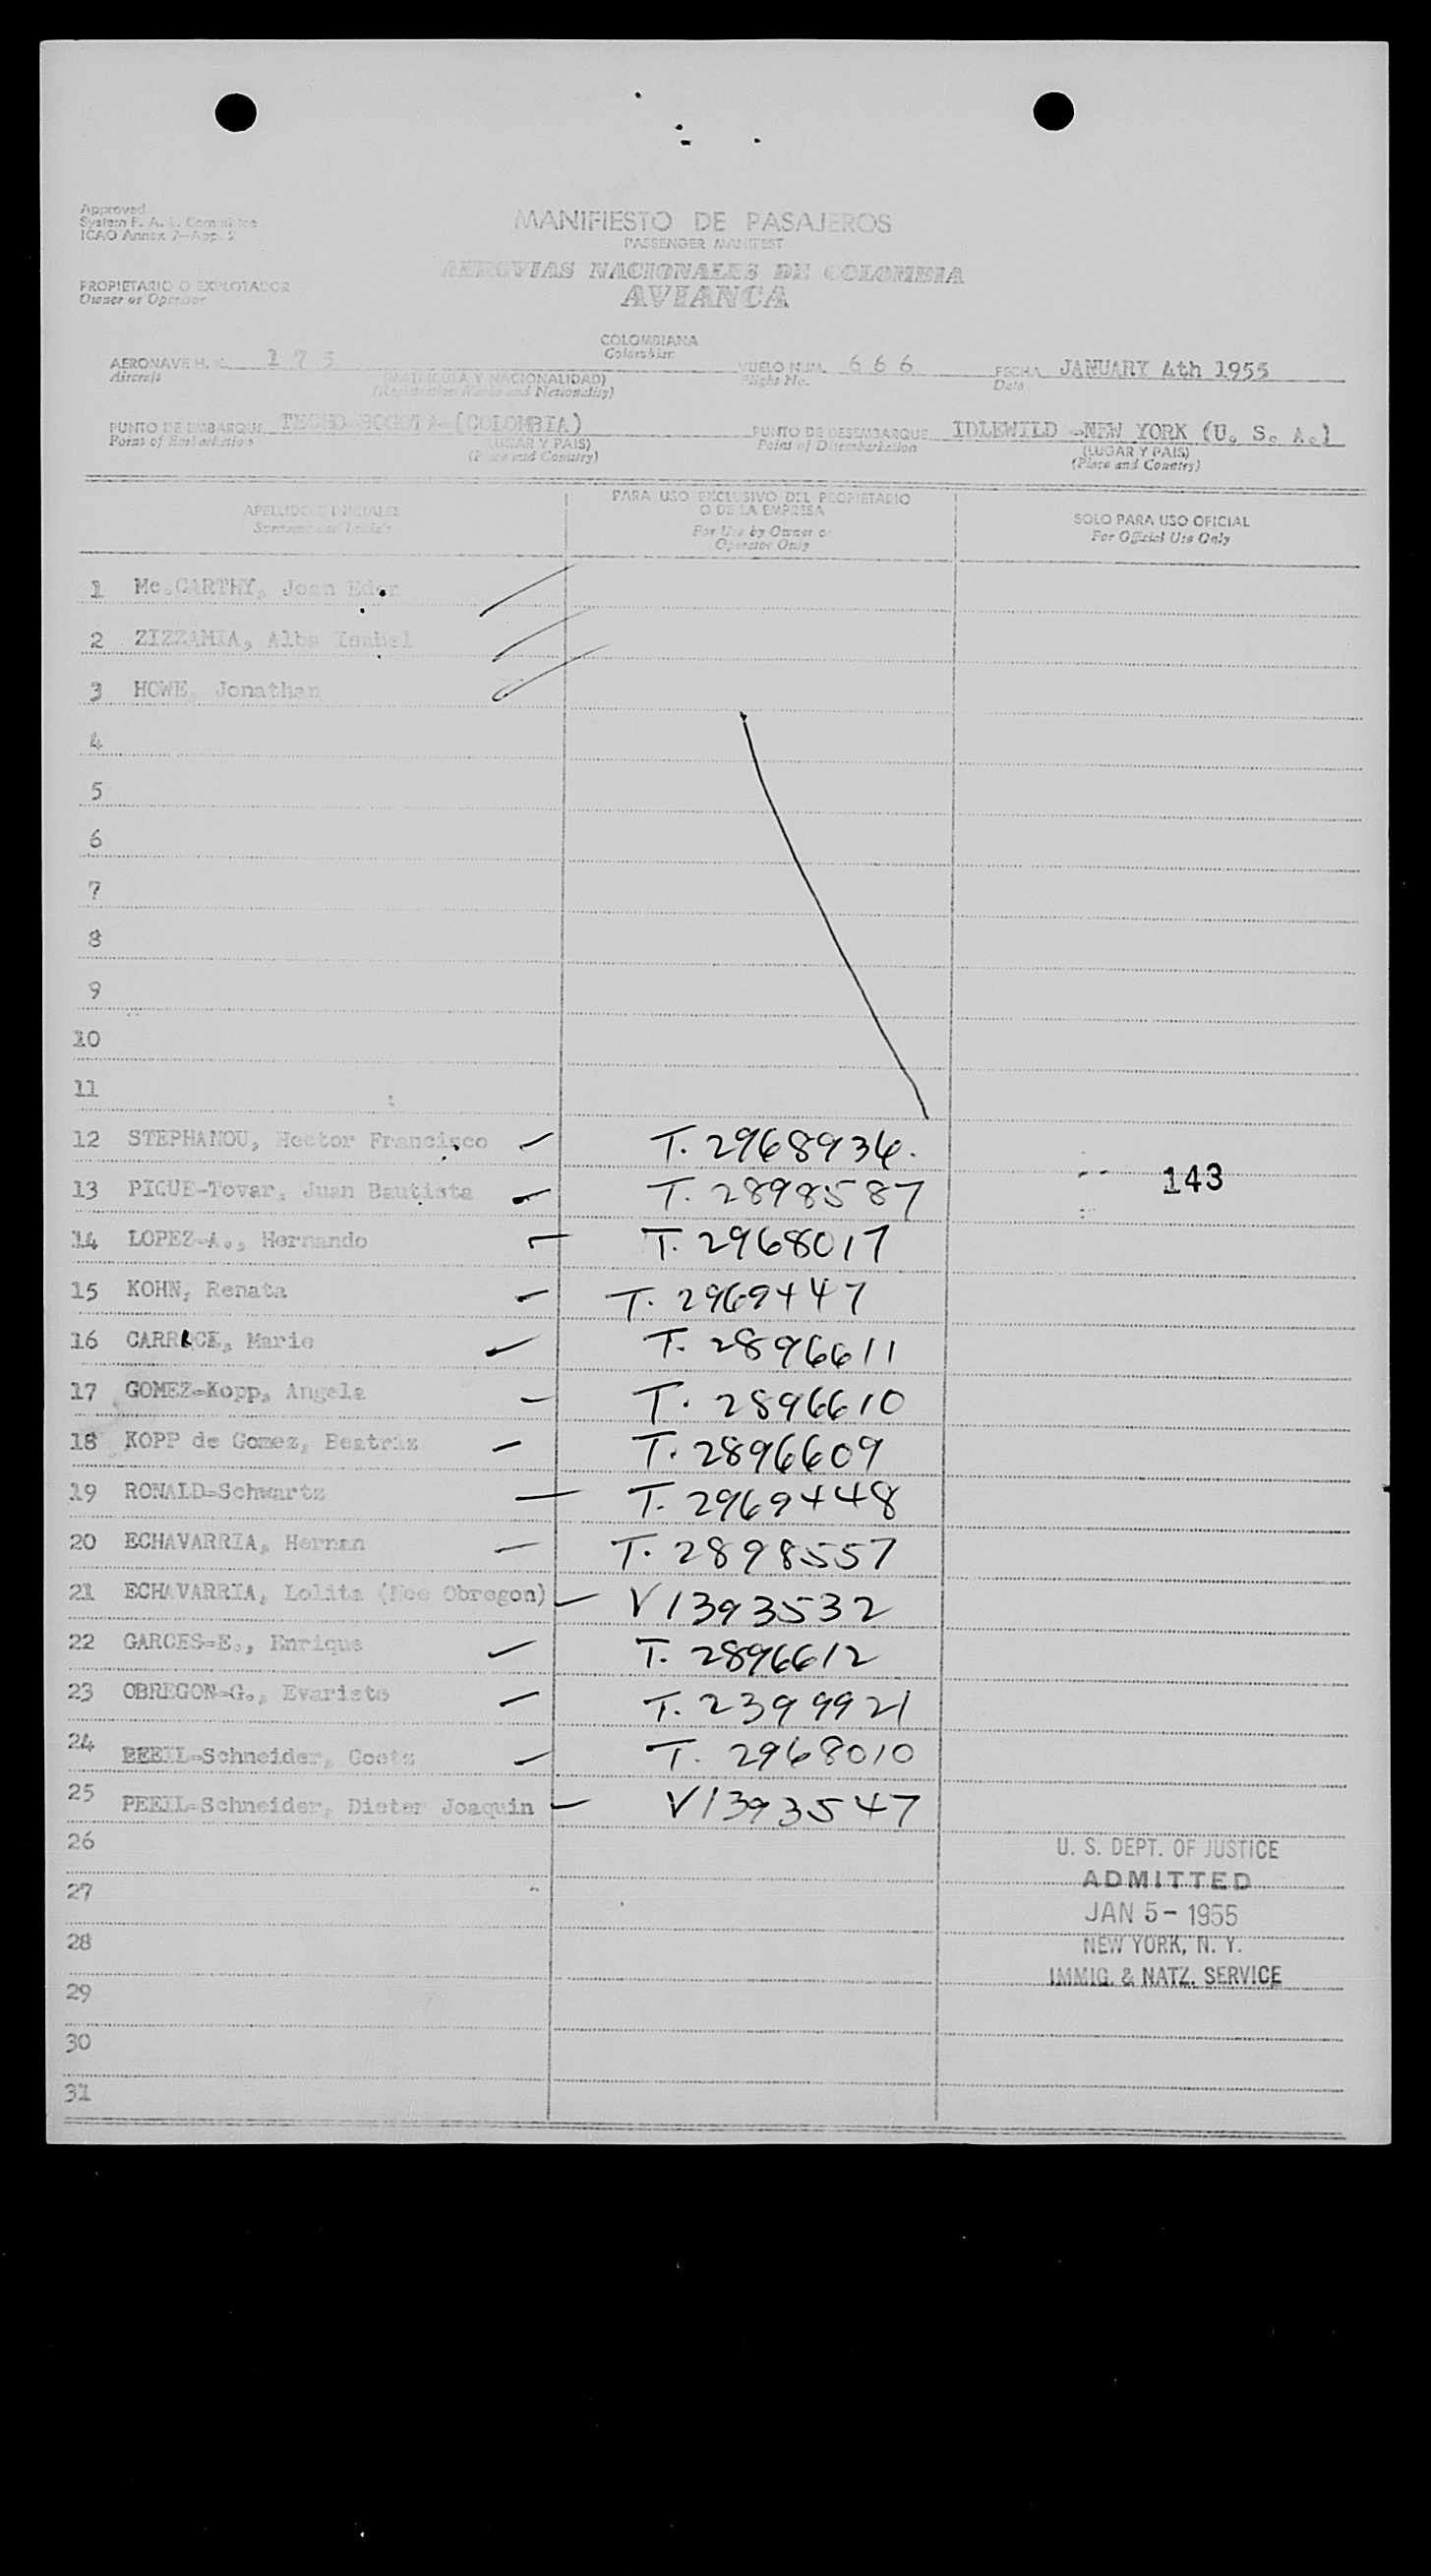 Approved
System F. A. L. Committee
ICAO Annex 9-App. 2
MANIFIESTO DE PASAJEROS
PASSENGER MANIFEST
AEROVIAS NACIONALES DE COLOMBIA
AVIANCA
PROPIETARIO O EXPLOTADOR
Owner or Operator
COLOMBIANA
Colombian
AERONAVE H. K. 175 VUELO NUM. 666 FECHA JANUARY 4th 1955
Aircraft (MATRICULA Y NACIONALIDAD) Flight No. Date
(Registration Marks and Nationality)
PUNTO DE EMBARQUE TECHO-BOGOTA-(COLOMBIA) PUNTO DE DESEMBARQUE IDLEWILD -NEW YORK (U. S. A.)
Point of Embarkation (LUGAR Y PAIS) Point of Disembarkation (LUGAR Y PAIS)
(Place and Country) (Place and Country)
APELLIDO E INICIALES PARA USO EXCLUSIVO DEL PROPIETARIO O DE LA EMPRESA SOLO PARA USO OFICIAL
Surname and Initials For Use by Owner or Operator Only For Official Use Only
1 Mc.CARTHY, Joan Eder
2 ZIZZAMIA, Alba Isabel
3 HOWE, Jonathan
4
5
6
7
8
9
10
11
12 STEPHANOU, Hector Francisco T. 2968936.
13 PIQUE-Tovar, Juan Bautista T. 2898587 143
14 LOPEZ-A., Hernando T. 2968017
15 KOHN, Renata T. 2969447
16 Marie T. 2896611
17 GOMEZ-Kopp, Angela T. 2896610
18 KOPP de Gomez, Beatriz T. 2896609
19 RONALD-Schwartz T. 2969448
20 ECHAVARRIA, Hernan T. 2898557
21 ECHAVARRIA, Lolita (Nee Obregon) V1393532
22 GARCES-E., Enrique T. 2896612
23 OBREGON-G., Evaristo T. 2399921
24 Goetz T. 2968010
25 PEEIL-Schneider, Dieter Joaquin V1393547
26
27
28
29
30
31
U. S. DEPT. OF JUSTICE
ADMITTED
JAN 5 - 1955
NEW YORK, N. Y.
IMMIG. & NATZ. SERVICE